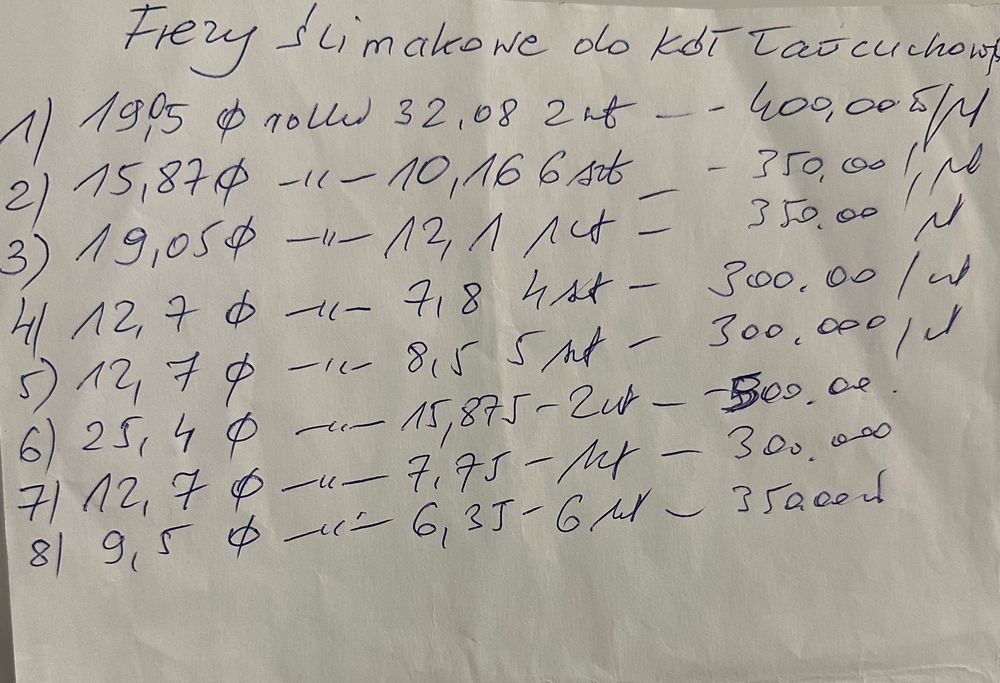 Frezy Ślimakowe do kół Łańcuchowy
1) 19,05 ϕ rolki 32,08 2 szt — - 400,00 /szt
2) 15,87 ϕ -"- 10,16 6 szt - 350,00 /szt
3) 19,05 ϕ -"- 12,1 1 szt - 350.00 szt
4) 12,7 ϕ -"- 7,8 4 szt - 300.00 / szt
5) 12,7 ϕ -"- 8,5 5 szt - 300.000 / szt
6) 25,4 ϕ -"- 15,875 - 2 szt - 500.00.
7) 12,7 ϕ -"- 7,75 - 1 szt - 300.000
8) 9,5 ϕ -"- 6,35 - 6 szt -